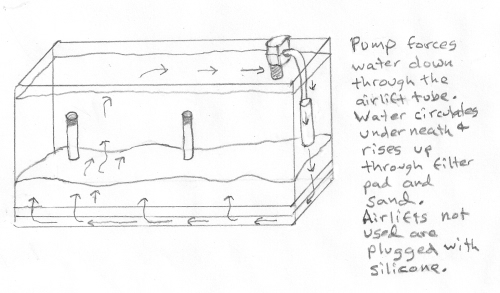 Pump forces
water down
through the
airlift tube.
Water circulates
underneath &
rises up
through filter
pad and
sand.
Airlifts not
used are
plugged with
silicone.